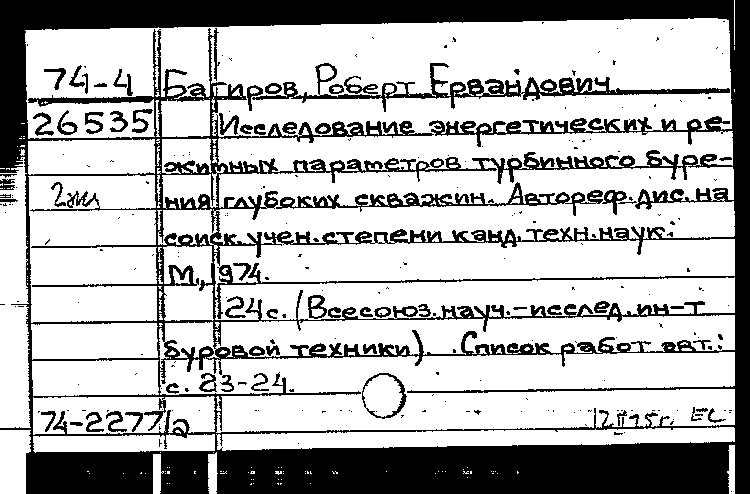 74-4 Багиров, Роберт Ервандович.
26535 Исследование энергетических и ре-
жимных параметров турбинного буре-
2 экз ния глубоких скважин. Автореф. дис. на
соиск. учен. степени канд. техн. наук.
М., 1974.
24 с. (Всесоюз. науч.-исслед. ин-т
буровой техники). Список работ авт.:
с. 23-24.
74-2277/а